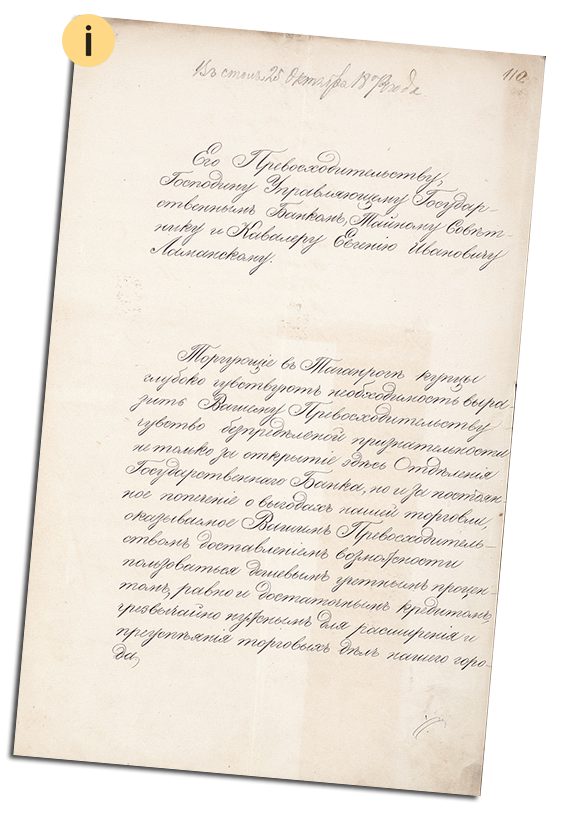 i
Въ стол. 25 Октября 18 года
110
Его Превосходительству,
Господину Управляющему Государ-
ственнымъ Банкомъ, Тайному Совѣт-
нику и Кавалеру Евгенію Ивановичу
Ламанскому.
Торгующіе въ Таганрогѣ купцы
глубоко чувствуютъ необходимость выра-
зить Вашему Превосходительству
чувство безпредѣльной признательности
не только за открытіе здѣсь Отдѣленія
Государственнаго Банка, но и за постоян-
ное попеченіе о выгодахъ нашей торговли,
оказываемое Вашимъ Превосходитель-
ствомъ доставленіемъ возможности
пользоваться дешевымъ учетнымъ процен-
томъ, равно и достаточнымъ кредитомъ,
чрезвычайно нужнымъ для расширенія и
преуспѣянія торговыхъ дѣлъ нашего горо-
да,